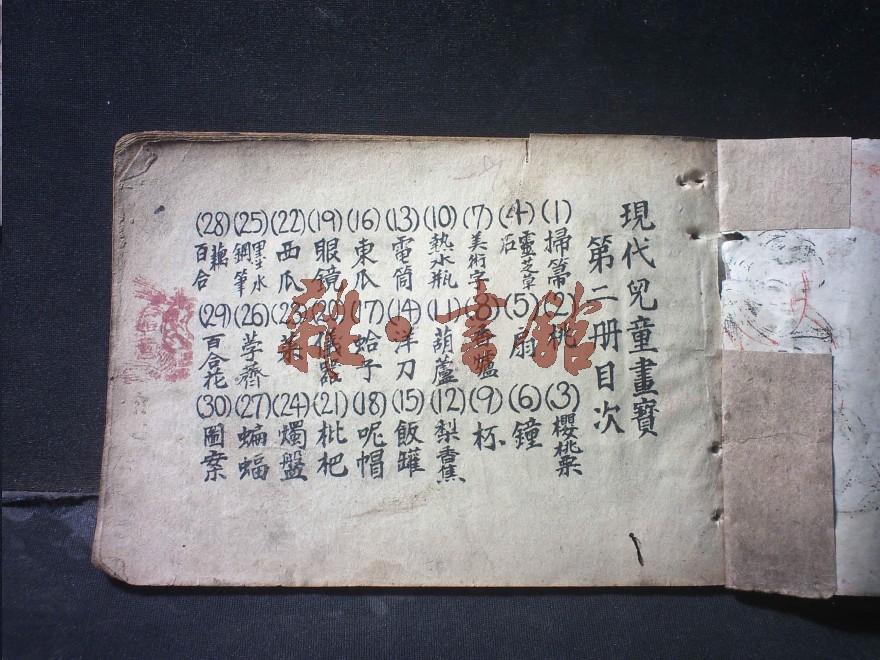 現代兒童畫寶
第二册目次
(1)掃箒 (2)桃 (3)櫻桃栗
(4)靈芝草石 (5)扇 (6)鐘
(7)美術字 (8)香爐 (9)杯
(10)熱水瓶 (11)葫蘆 (12)梨香蕉
(13)電筒 (14)洋刀 (15)飯罐
(16)東瓜 (17)蛤子 (18)呢帽
(19)眼鏡 (20)儀器 (21)枇杷
(22)西瓜 (23)菊 (24)燭盤
(25)墨水鋼筆 (26)荸薺 (27)蝙蝠
(28)藕百合 (29)百合花 (30)圖案
雜·書館